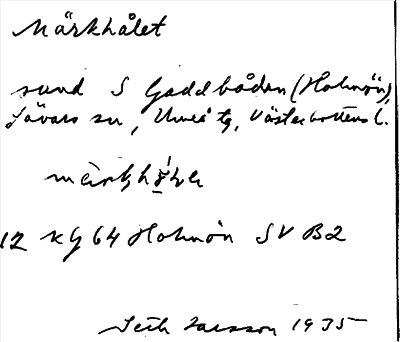 Märkhålet
sund S Gaddbåden (Holmön),
Sävars sn, Umeå tg, Västerbottens l.
12 kg 64 Holmön SV B2
Seth Larsson 1935